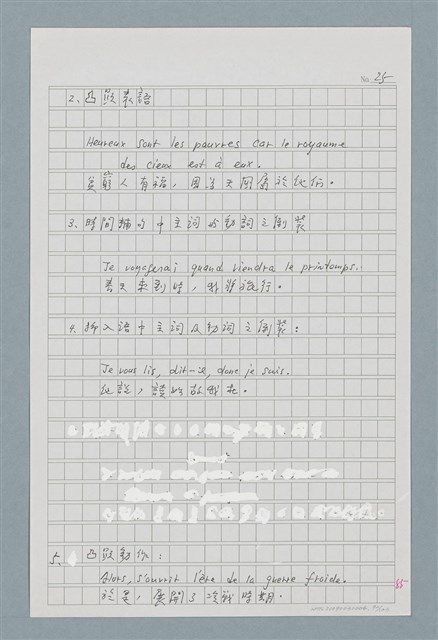 No. 25
2、凸顯表語
Heureux sont les pauvres car le royaume
des cieux est à eux.
貧窮人有福,因為天國屬於他們。
3、時間輔句中主詞與動詞之倒裝
Je voyagerai quand viendra le printemps.
春天來到時,我將旅行。
4、插入語中主詞及動詞之倒裝:
Je vous lis, dit-il, donc je suis.
他說,讀你故我在。
5、凸顯動作:
Alors, s'ouvrit l'ère de la guerre froide.
於是,展開了冷戰時期。
55